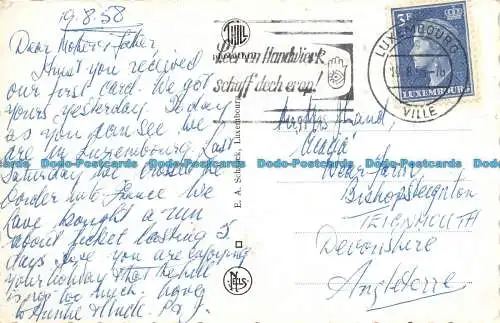 19.8.58
Dear Mother & Father
I trust you recieved
our first card. We got
yours yesterday. Today
as you can see we
are in Luxembourg. Last
Saturday we crossed the
border into France. We
have bought a run
about ticket lasting 5
days. Hope you are enjoying
your holiday & that the hill
is not too much. Love
to Auntie & Uncle.
E. A. Schaack, Luxembourg
NELS
Léiert en Handwierk
schaff dech erop!
LUXEMBOURG
VILLE
3F
LUXEMBOURG
Mr & Mrs
Wear Farm
Bishopsteignton
TEIGNMOUTH
Devonshire
Angleterre
Docto-Postcards.co.uk Docto-Postcards.co.uk Docto-Postcards.co.uk
Docto-Postcards.co.uk Docto-Postcards.co.uk Docto-Postcards.co.uk